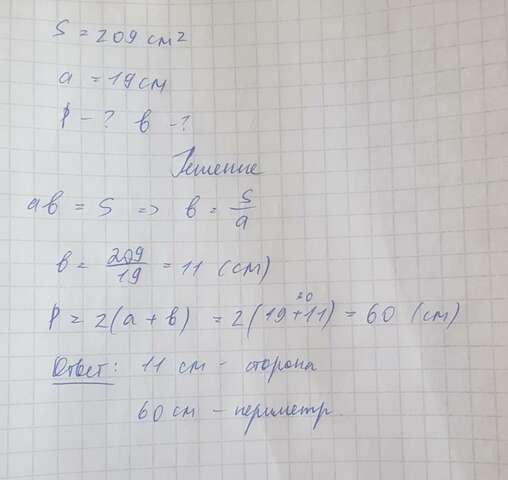 S = 209 см²
a = 19 см
P - ? в - ?
Решение
ab = S => в = S/a
в = 209/19 = 11 (см)
20
P = 2(a + в) = 2(19+11) = 60 (см)
Ответ: 11 см - сторона
60 см - периметр.